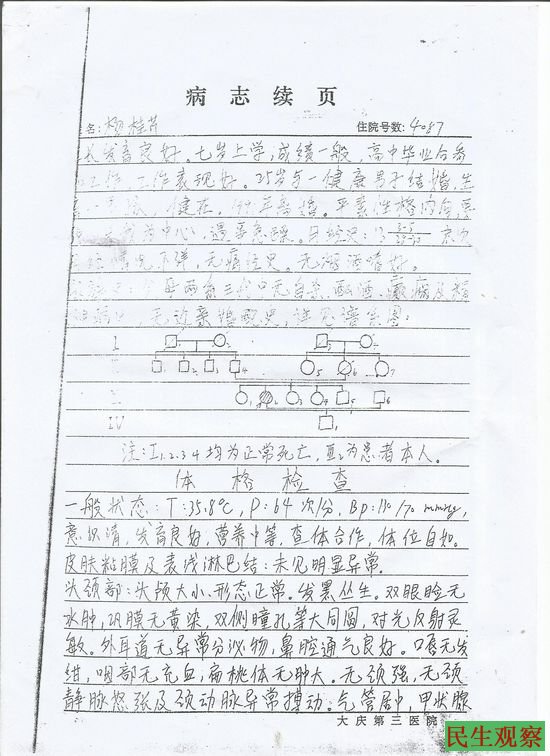 病志续页
名: 杨桂芹 住院号数: 4087
长发育良好。七岁上学,成绩一般,高中毕业后参
工作,工作表现好。25岁与一健康男子结婚,生
健在,年离婚。平素性格内向,
中心,遇事急躁。月经史:13
情况不详,无癫痫史。无烟酒嗜好。
两系三代中无自杀,酗酒,癫痫及
无近亲婚配史,详见谱系图:
I 1 2 3 4
1 2 3 4 5 6 7
1 2 3 4 5 6
IV 1
注:I1.2.3.4均为正常死亡,Ⅲ2为患者本人。
体格检查
一般状态:T:35.8℃,P:64次/分,Bp:110/70mmHg,
意识清,发育良好,营养中等,查体合作,体位自如。
皮肤粘膜及表浅淋巴结:未见明显异常。
头颈部:头颅大小、形态正常。发黑丛生。双眼睑无
水肿,巩膜无黄染,双侧瞳孔等大同圆,对光反射灵
敏。外耳道无异常分泌物,鼻腔通气良好。口唇无发
绀,咽部无充血,扁桃体无肿大。无颈强,无颈
静脉怒张及颈动脉异常搏动。气管居中,甲状腺
大庆第三医院
民生观察